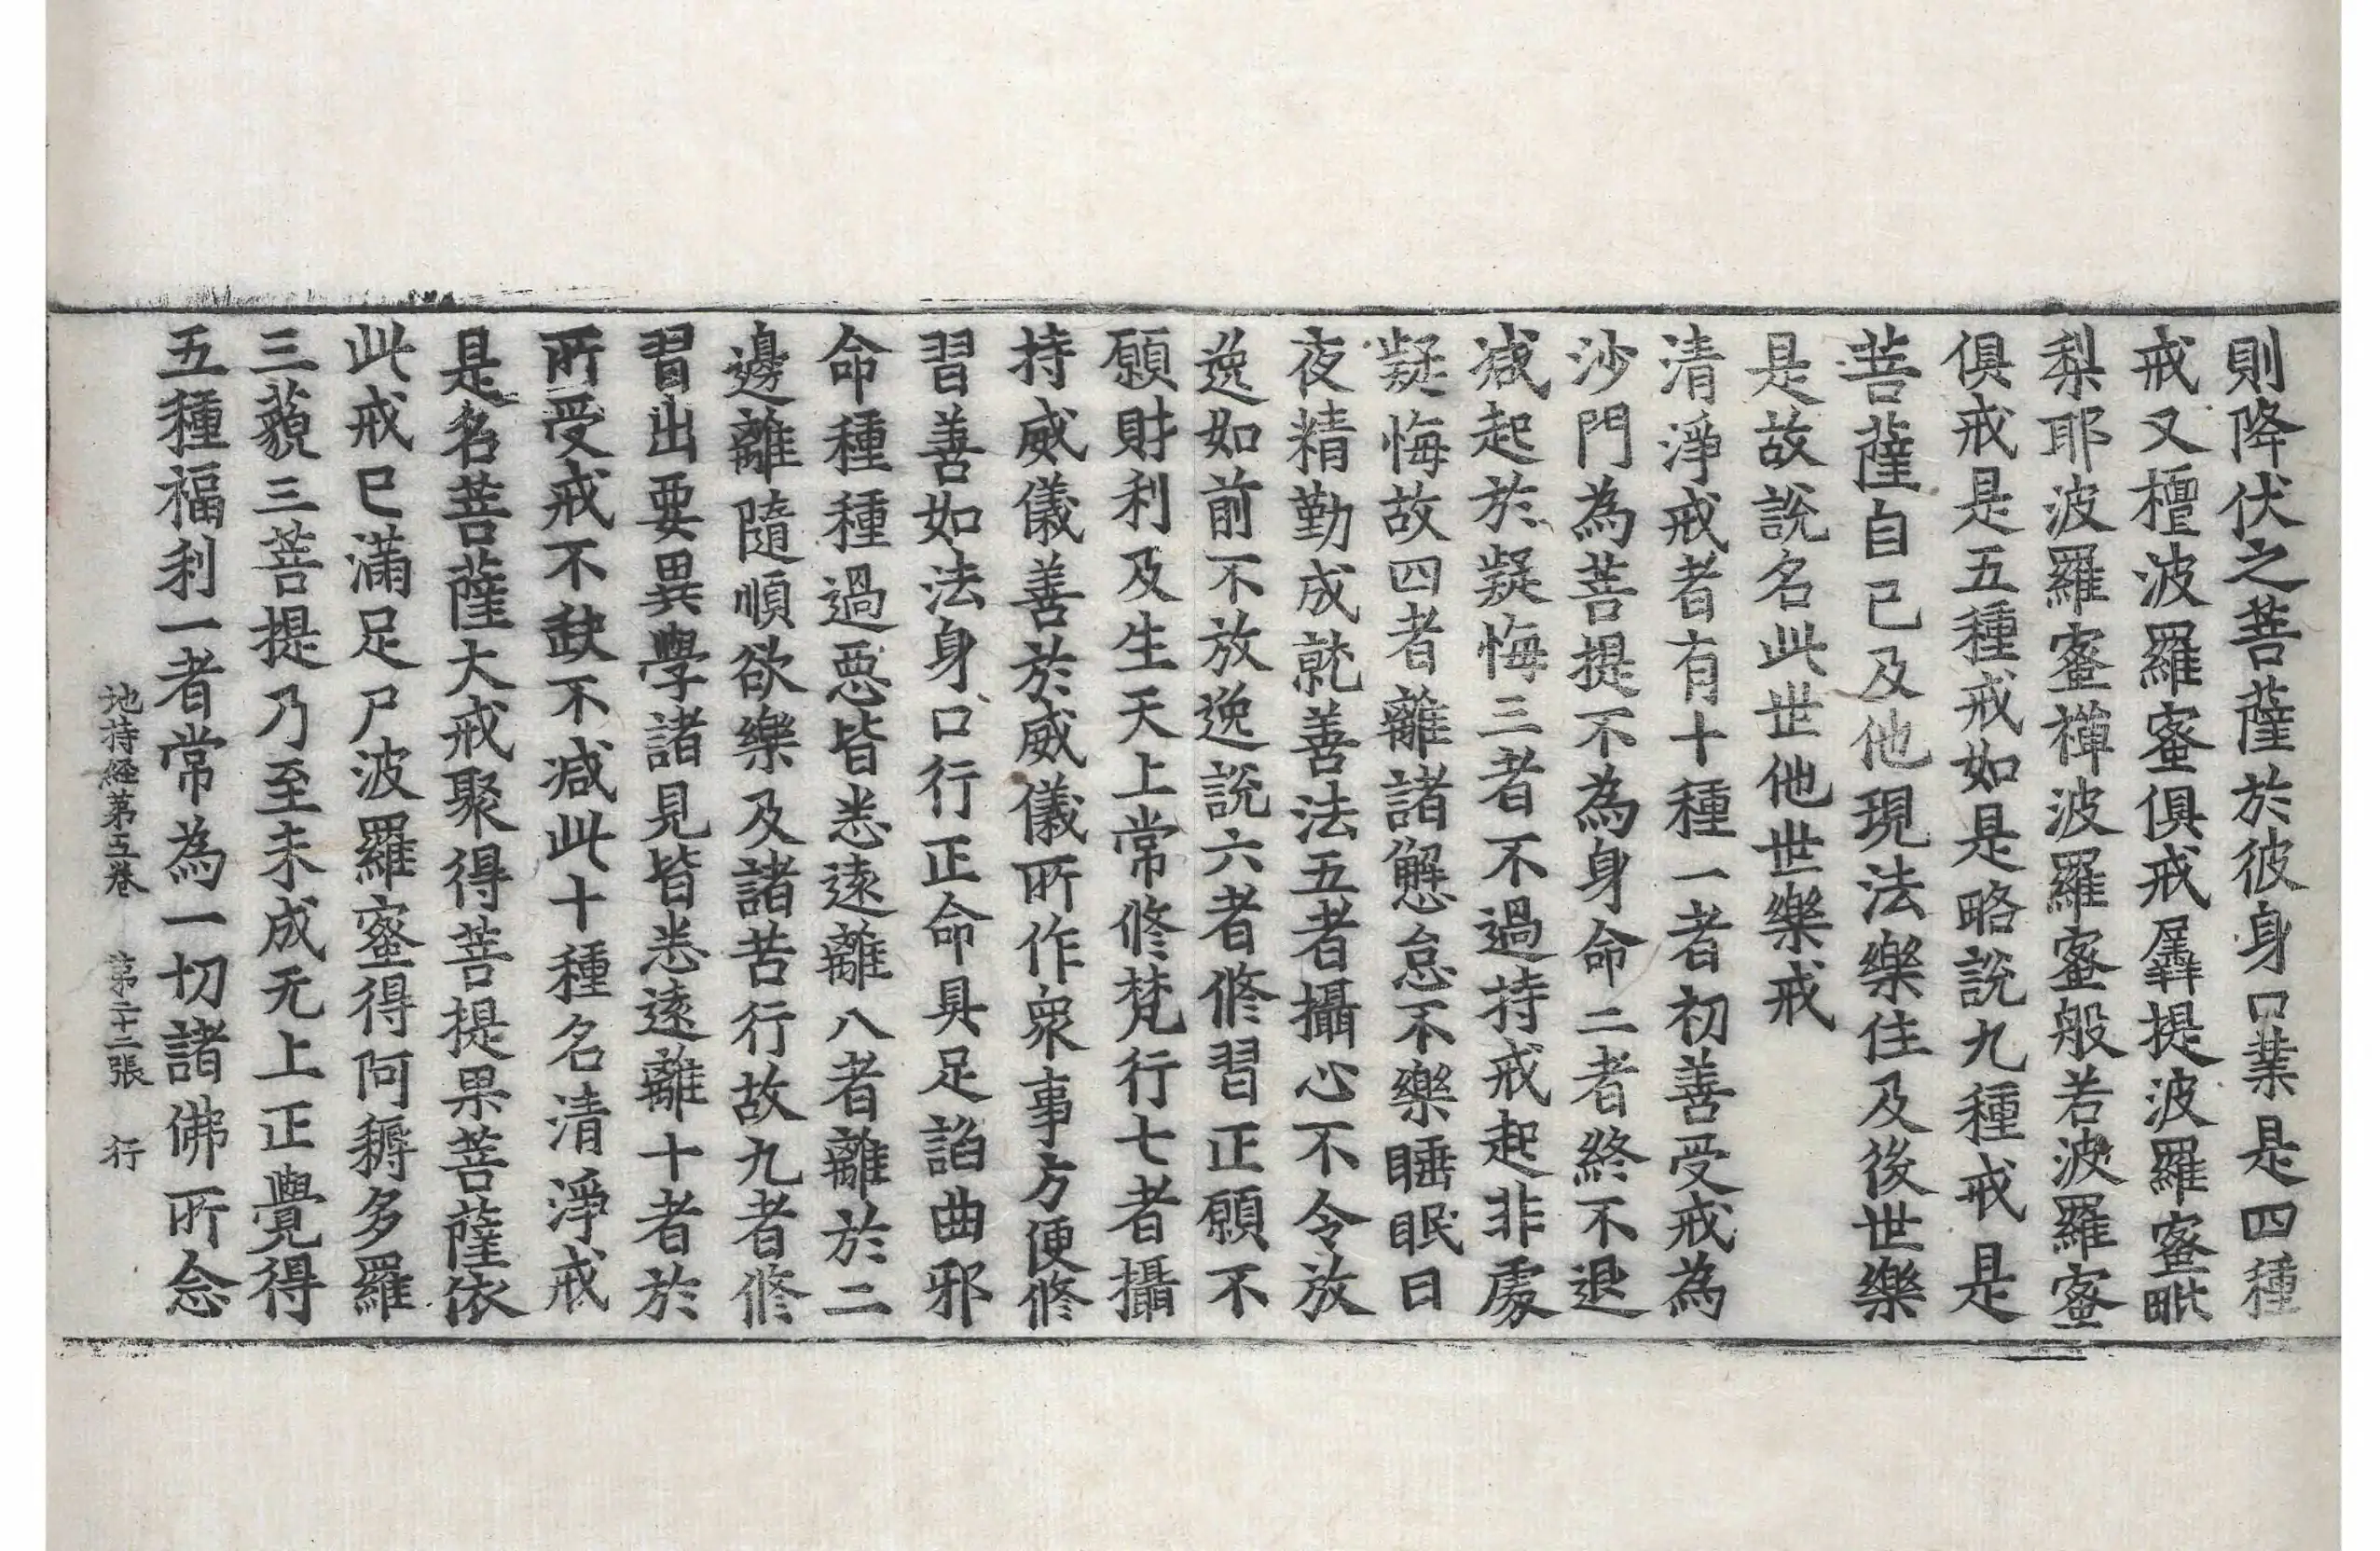 則降伏之菩薩於彼身口業是四種
戒又檀波羅蜜俱戒羼提波羅蜜毗
梨耶波羅蜜禪波羅蜜般若波羅蜜
俱戒是五種戒如是略說九種戒是
菩薩自已及他現法樂住及後世樂
是故說名此世他世樂戒
清淨戒者有十種一者初善受戒為
沙門為菩提不為身命二者終不退
減起於疑悔三者不過持戒起非處
疑悔故四者離諸懈怠不樂睡眠日
夜精勤成就善法五者攝心不令放
逸如前不放逸說六者修習正願不
願財利及生天上常修梵行七者攝
持威儀善於威儀所作眾事方便修
習善如法身口行正命具足諂曲邪
命種種過惡皆悉遠離八者離於二
邊離隨順欲樂及諸苦行故九者修
習出要異學諸見皆悉遠離十者於
所受戒不缺不減此十種名清淨戒
是名菩薩大戒聚得菩提果菩薩依
此戒巳滿足尸波羅蜜得阿耨多羅
三藐三菩提乃至未成无上正覺得
五種福利一者常為一切諸佛所念
地持経第五卷 第二十二張 行